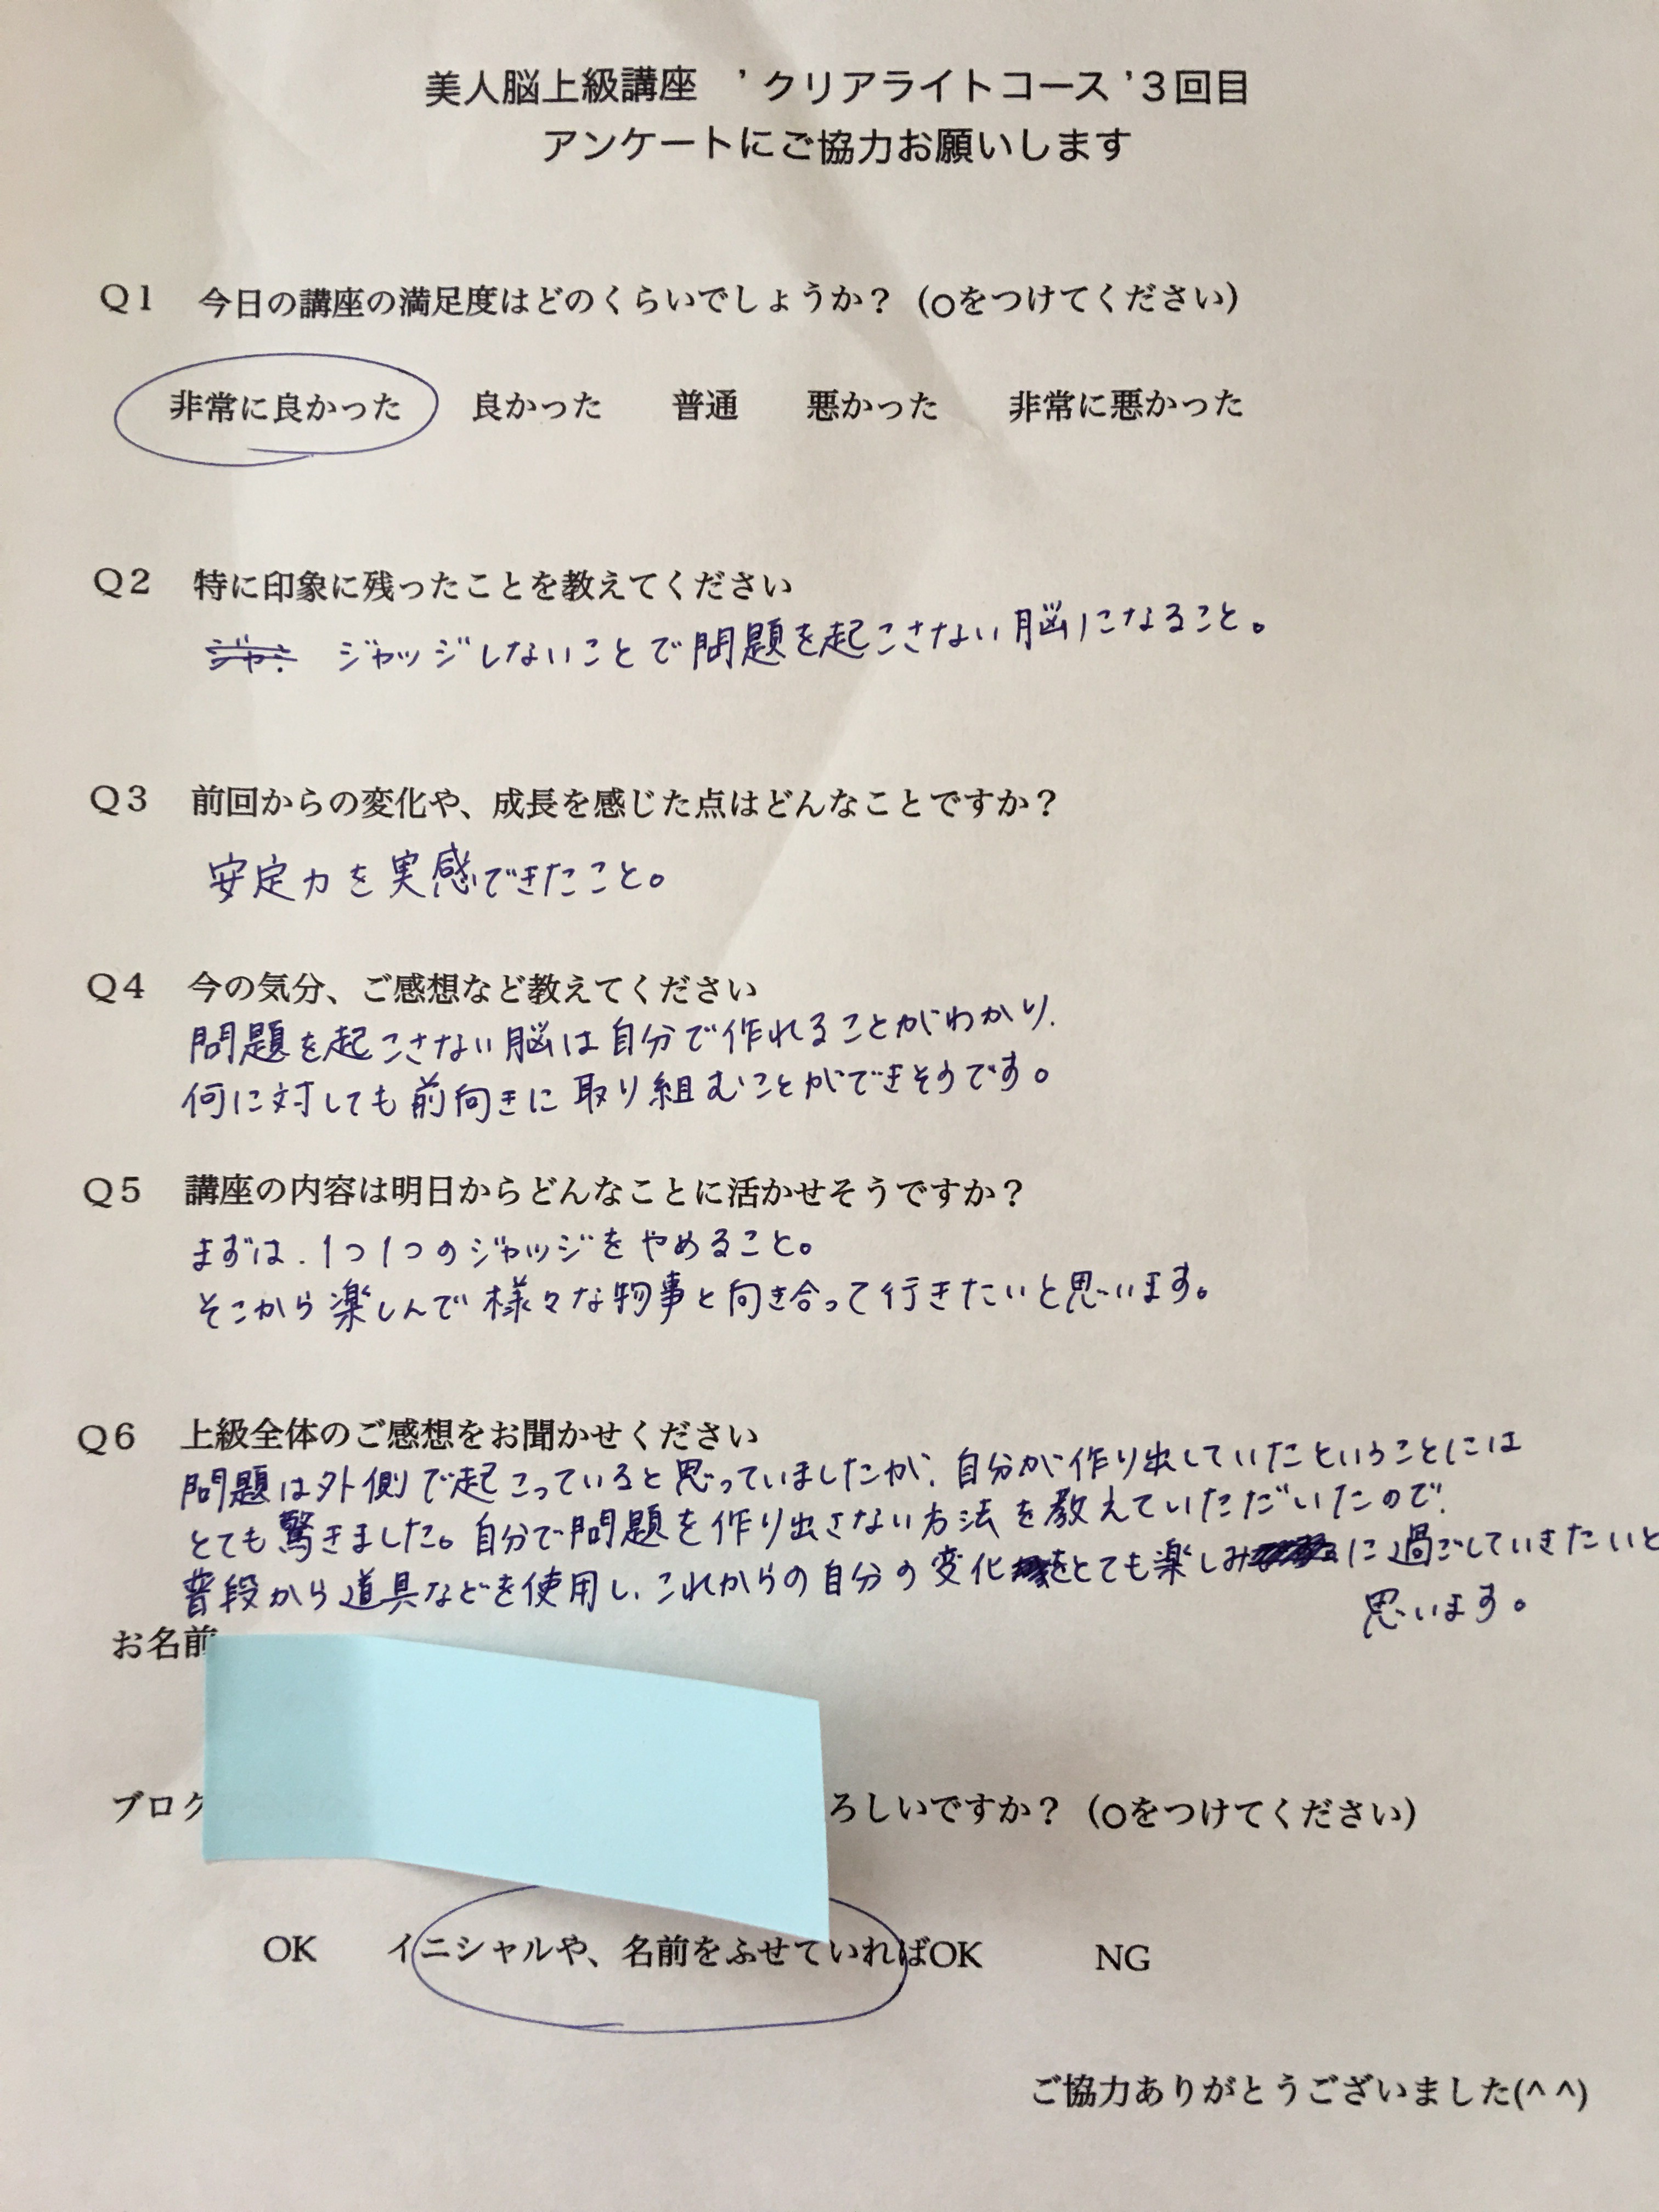 美人脳上級講座　’クリアライトコース’３回目
アンケートにご協力お願いします
Q１　今日の講座の満足度はどのくらいでしょうか？（○をつけてください）
非常に良かった　良かった　普通　悪かった　非常に悪かった
Q２　特に印象に残ったことを教えてください
ジャッジしないことで問題を起こさない脳になること。
Q３　前回からの変化や、成長を感じた点はどんなことですか？
安定力を実感できたこと。
Q４　今の気分、ご感想など教えてください
問題を起こさない脳は自分で作れることがわかり、
何に対しても前向きに取り組むことができそうです。
Q５　講座の内容は明日からどんなことに活かせそうですか？
まずは、1つ1つのジャッジをやめること。
そこから楽しんで様々な物事と向き合って行きたいと思います。
Q６　上級全体のご感想をお聞かせください
問題は外側で起こっていると思っていましたが、自分が作り出していたということには
とても驚きました。自分で問題を作り出さない方法を教えていただいたので、
普段から道具などを使用し、これからの自分の変化をとても楽しみに過ごしていきたいと
思います。
お名前
ブログ
ろしいですか？（○をつけてください）
OK　イニシャルや、名前をふせていればOK　NG
ご協力ありがとうございました(^ ^)